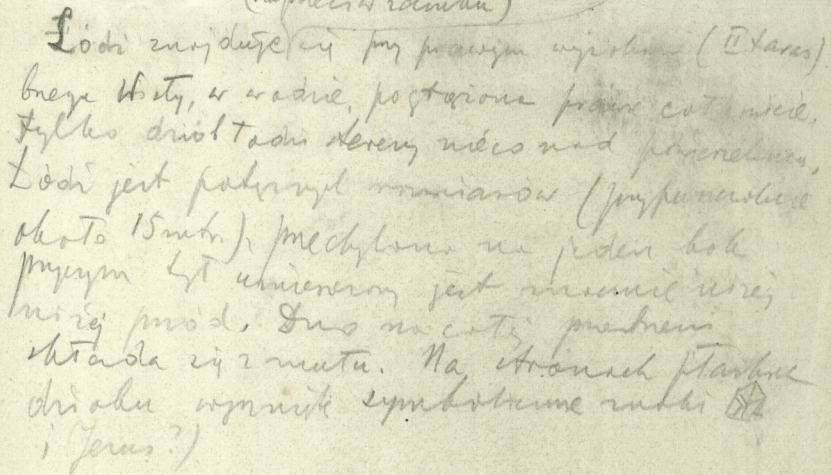 (naprzeciw zamku)
Łódź znajduje się przy prawym (II taras)
brzegu Wisły, w wodzie, pogrążona prawie całkowicie,
tylko dziób łodzi sterczy nieco nad powierzchnią,
Łódź jest potężnych rozmiarów (przypuszczalnie
około 15 mtr.), przechylona na jeden bok
przyczym tył umieszczony jest znacznie niżej
niżej przód. Dno na całej przestrzeni
składa się z mułu. Na stronach
dziobu symboliczne znaki
i (Jezus?)